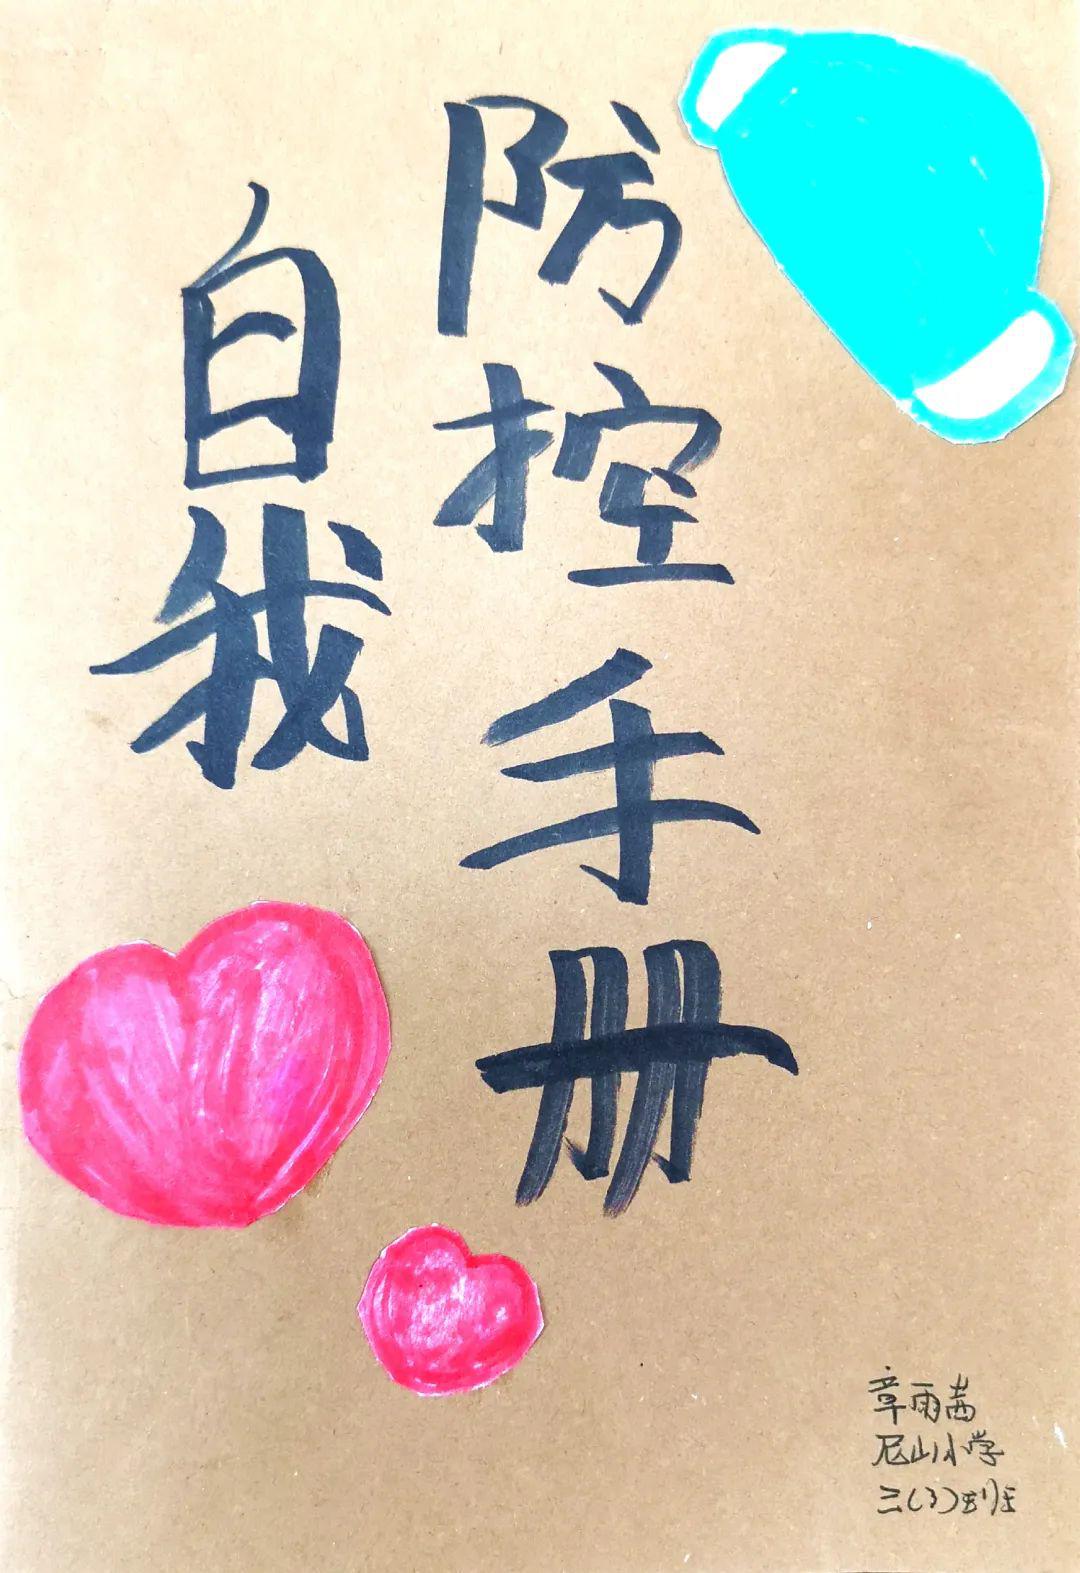 自我
防控手册
章雨茜
尼山小学
三(3)班